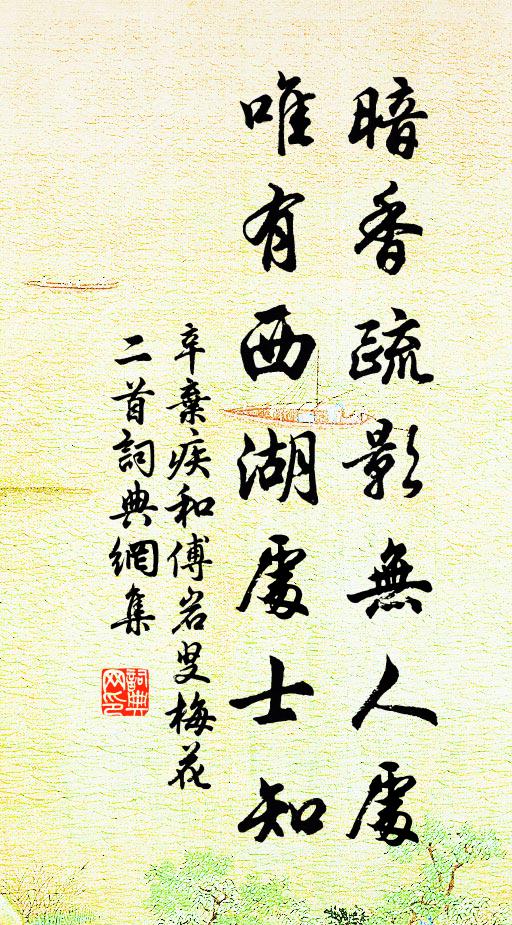 暗香疏影無人處
唯有西湖處士知
辛棄疾和傅岩叟梅花
二首詞典網集
詞典網印